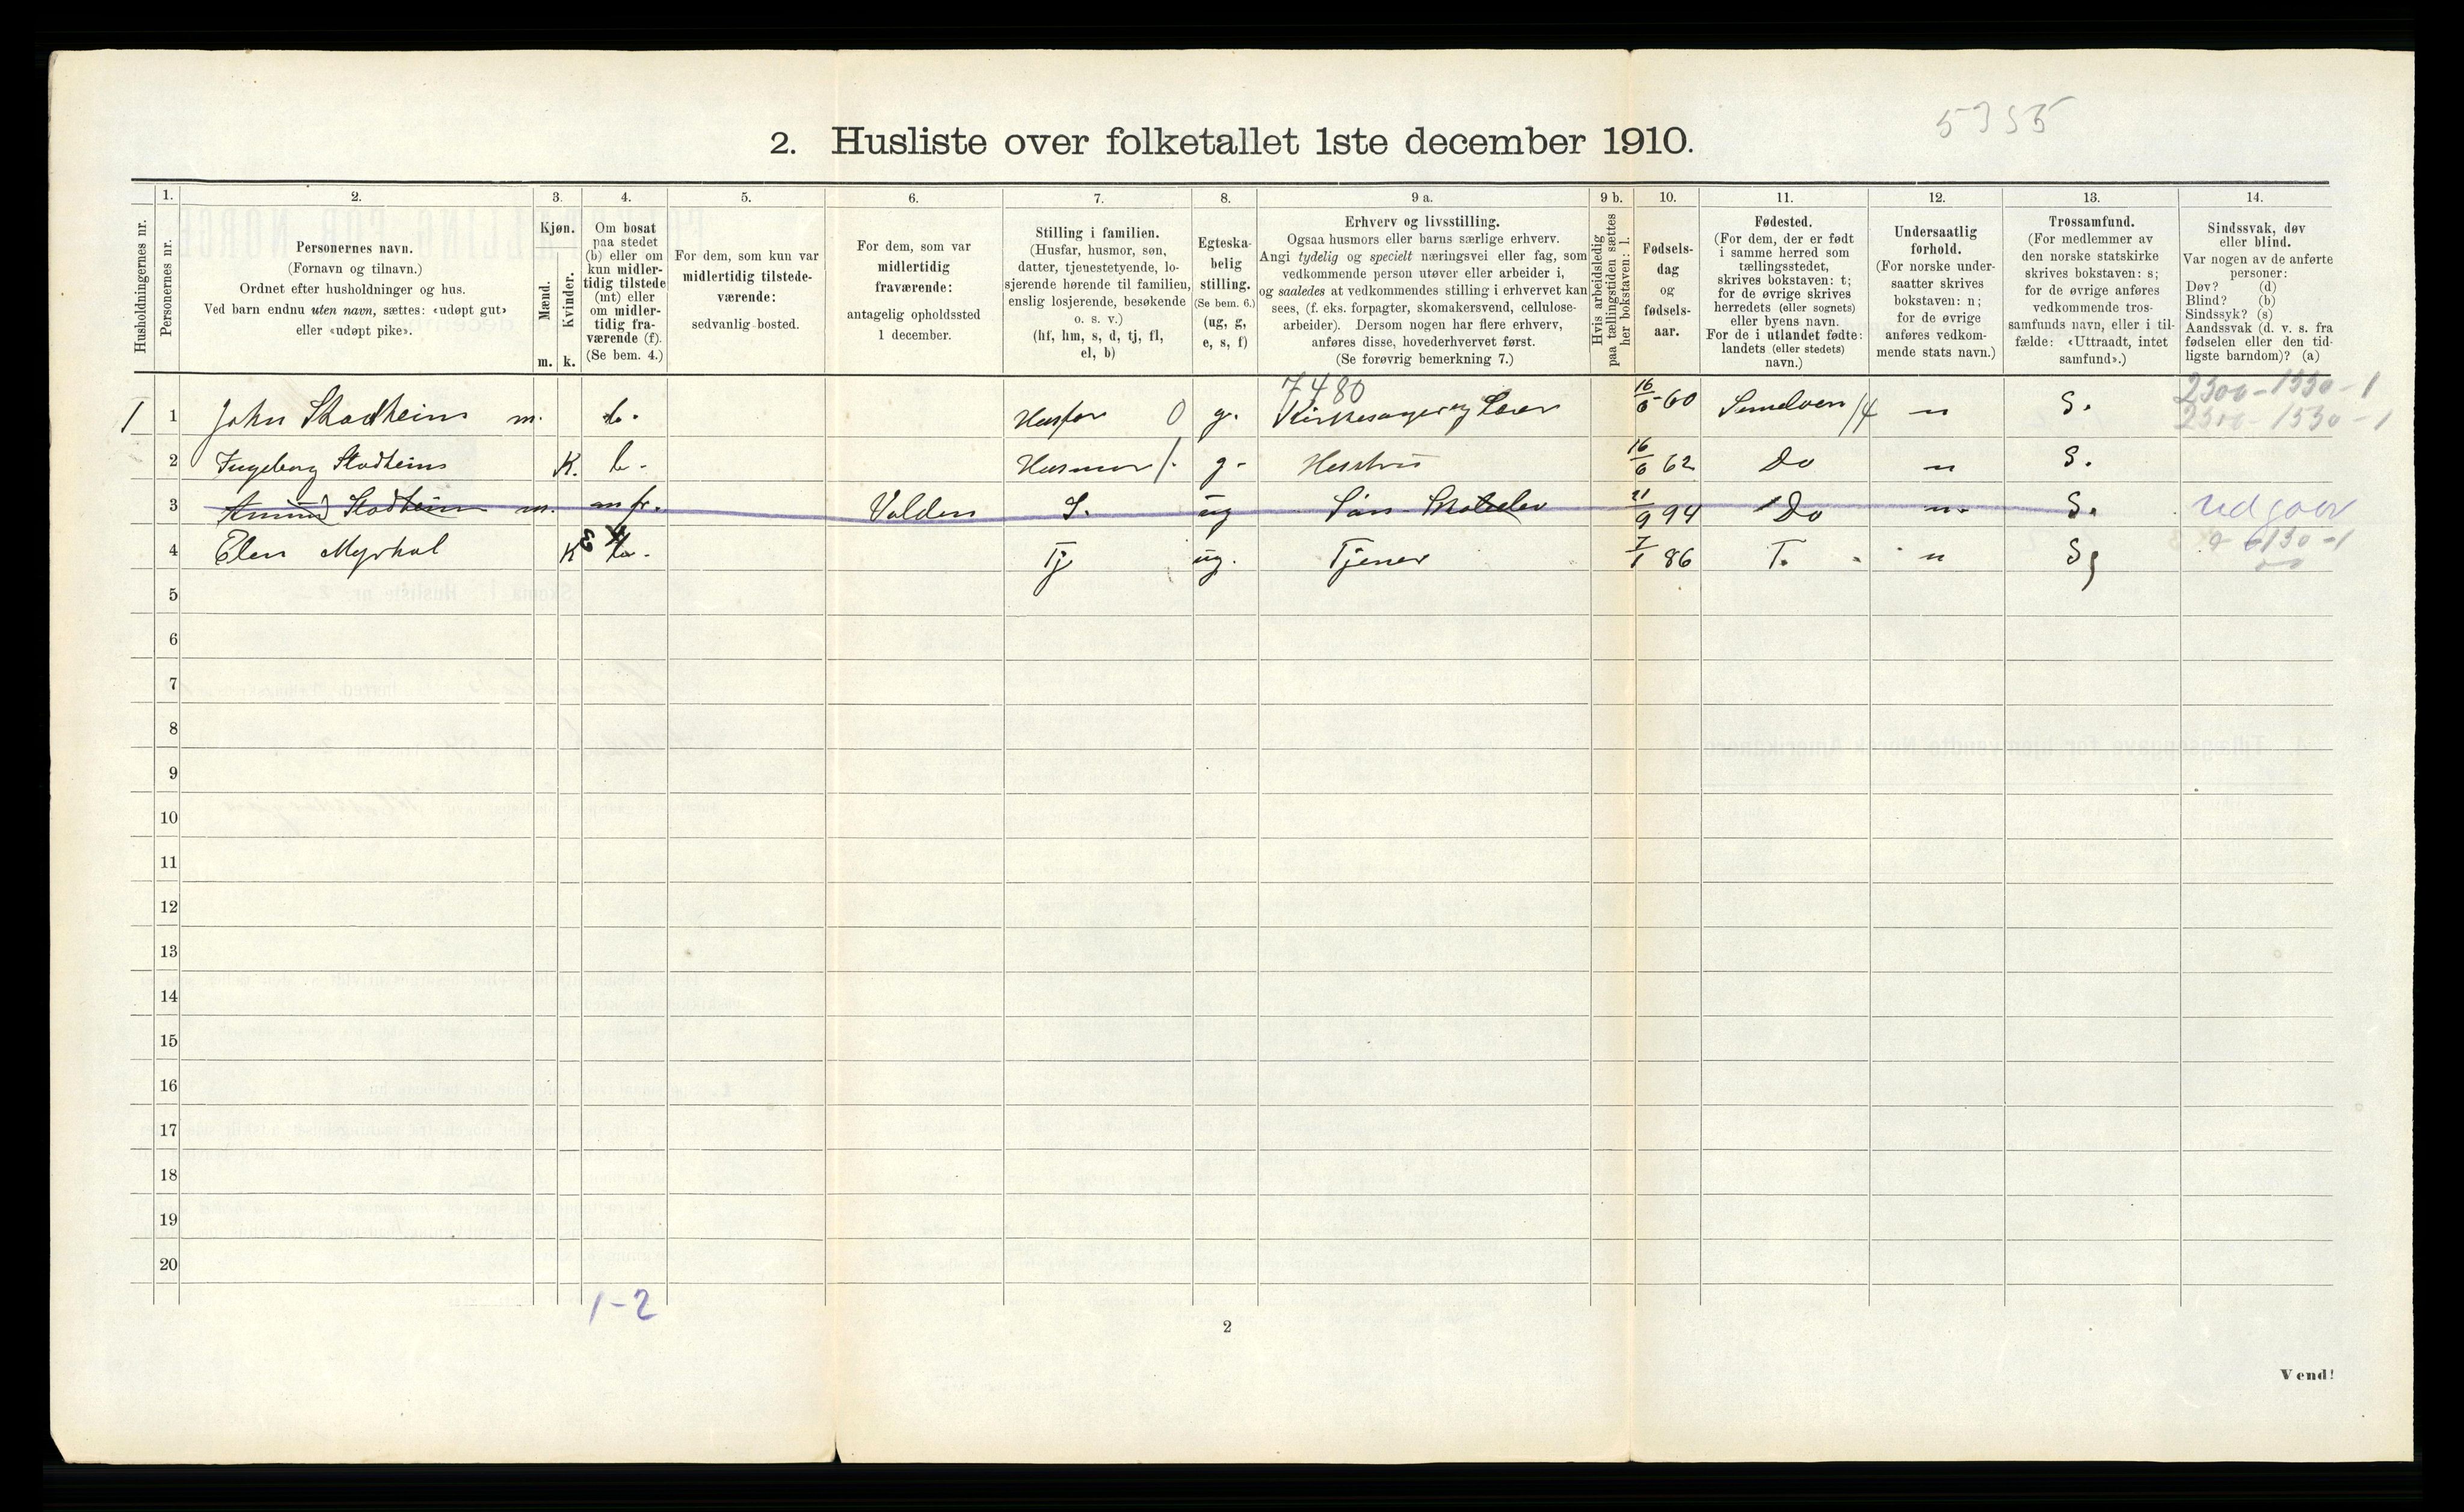 5355
2. Husliste over folketallet 1ste december 1910.
Husholdningernes nr.
1.
Personernes nr.
2.
Personernes navn.
(Fornavn og tilnavn.)
Ordnet efter husholdninger og hus.
Ved barn endnu uten navn, sættes: «udøpt gut»
eller «udøpt pike».
3.
Kjøn.
Mænd.
Kvinder.
m. k.
4.
Om bosat
paa stedet
(b) eller om
kun midler-
tidig tilstede
(mt) eller
om midler-
tidig fra-
værende (f).
(Se bem. 4.)
5.
For dem, som kun var
midlertidig tilstede-
værende:
sedvanlig bosted.
6.
For dem, som var
midlertidig
fraværende:
antagelig opholdssted
1 december.
7.
Stilling i familien.
(Husfar, husmor, søn,
datter, tjenestetyende, lo-
sjerende hørende til familien,
enslig losjerende, besøkende
o. s. v.)
(hf, hm, s, d, tj, fl,
el, b)
8.
Egteska-
belig
stilling.
(Se bem. 6.)
(ug, g,
e, s, f)
9 a.
Erhverv og livsstilling.
Ogsaa husmors eller barns særlige erhverv.
Angi tydelig og specielt næringsvei eller fag, som
vedkommende person utøver eller arbeider i,
og saaledes at vedkommendes stilling i erhvervet kan
sees, (f. eks. forpagter, skomakersvend, cellulose-
arbeider). Dersom nogen har flere erhverv,
anføres disse, hovederhvervet først.
(Se forøvrig bemerkning 7.)
9 b.
Hvis arbeidsledig
paa tællingstiden sættes
her bokstaven: l.
10.
Fødsels-
dag
og
fødsels-
aar.
11.
Fødested.
(For dem, der er født
i samme herred som
tællingsstedet,
skrives bokstaven: t;
for de øvrige skrives
herredets (eller sognets)
eller byens navn.
For de i utlandet fødte:
landets (eller stedets)
navn.)
12.
Undersaatlig
forhold.
(For norske under-
saatter skrives
bokstaven: n;
for de øvrige
anføres vedkom-
mende stats navn.)
13.
Trossamfund.
(For medlemmer av
den norske statskirke
skrives bokstaven: s;
for de øvrige anføres
vedkommende tros-
samfunds navn, eller i til-
fælde: «Uttraadt, intet
samfund».)
14.
Sindssvak, døv
eller blind.
Var nogen av de anførte
personer:
Døv? (d)
Blind? (b)
Sindssyk? (s)
Aandssvak (d. v. s. fra
fødselen eller den tid-
ligste barndom)? (a)
7480
2300-1530-1
1 1 John Skodheim m. b. Husfar 0 g. Kirkesanger og Lærer 16/6-60 /4 n S. 2300-1530-1
2 Ingeborg Stodheim K. b. Husmor /. g. Hustru 16/6 62 Do n S.
3 Amund Stodheim m. m fr. Volden S. ug Søn Skoleelev 21/9 94 Do n. S. Udgaar
4 Elen Myrhol K b. Tj ug. Tjener 7/1 86 T. n S
5
6
7
8
9
10
11
12
13
14
15
16
17
18
19
20
1-2
2
Vend!